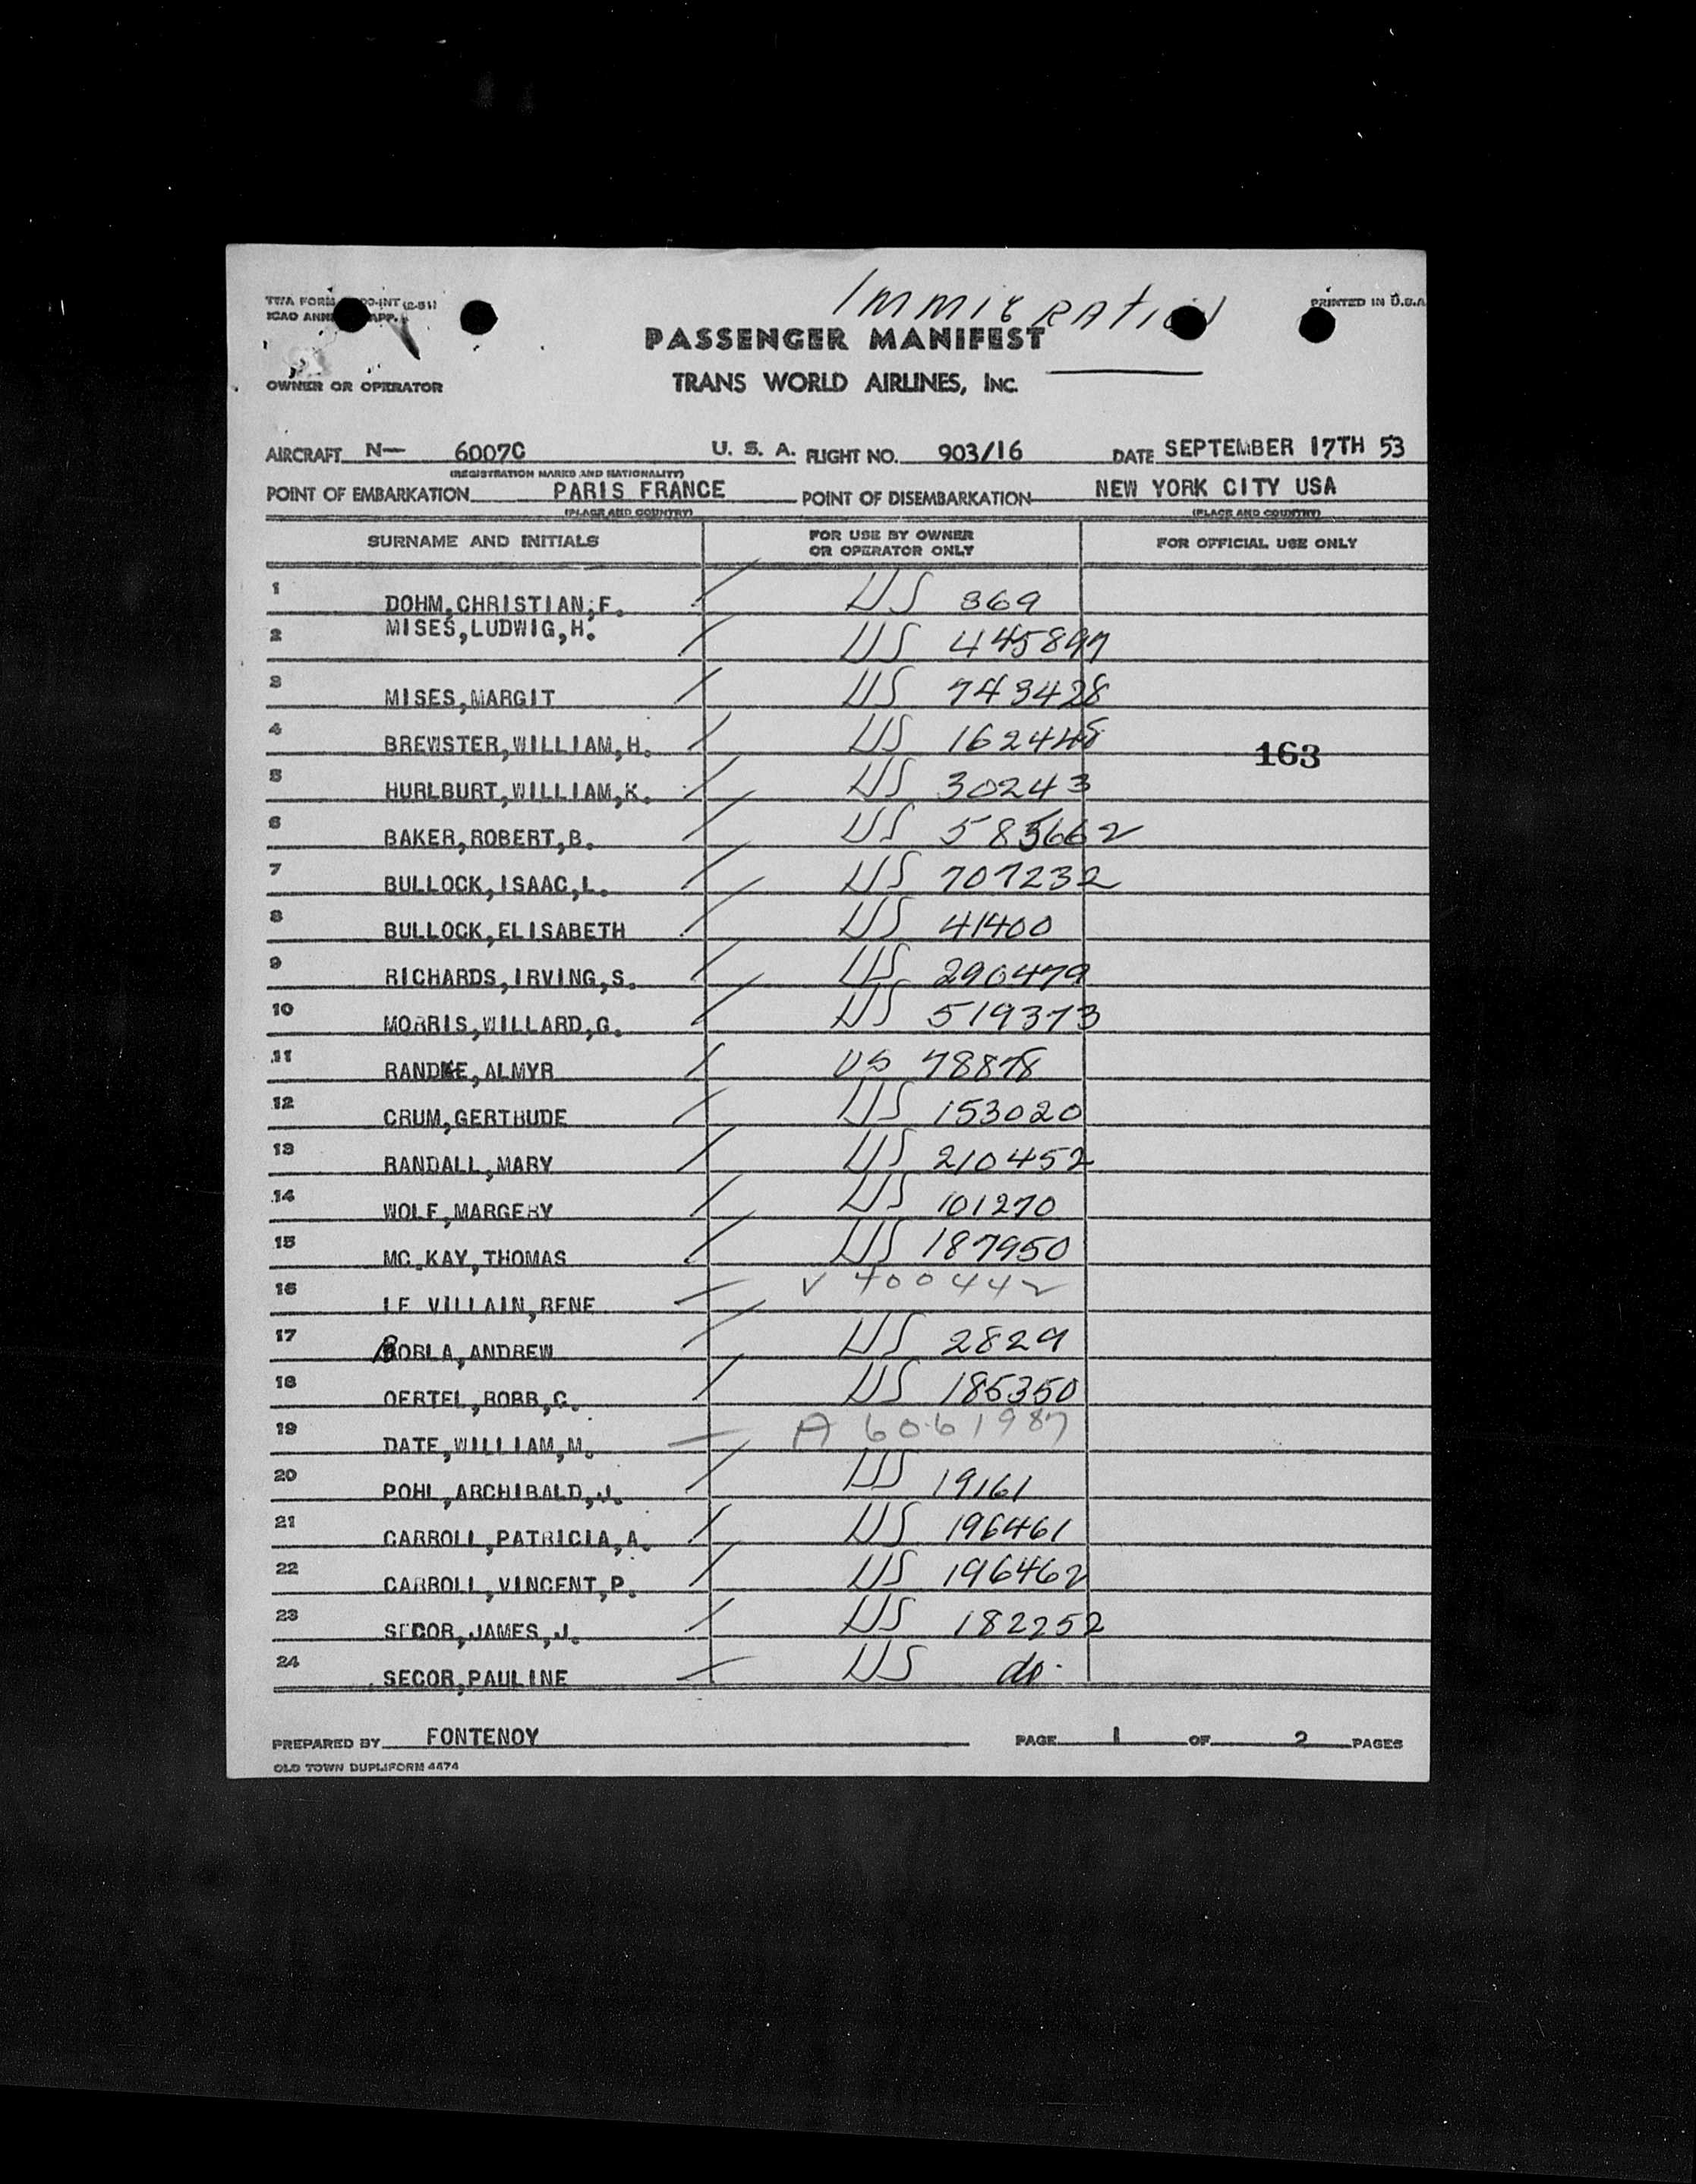 IMMIGRATION
TWA FORM 00-INT (2-51)
PRINTED IN U.S.A
ICAO ANN APP.
PASSENGER MANIFEST
OWNER OR OPERATOR
TRANS WORLD AIRLINES, INC.
AIRCRAFT N— 6007C U. S. A. FLIGHT NO. 903/16 DATE SEPTEMBER 17TH 53
(REGISTRATION MARKS AND NATIONALITY)
POINT OF EMBARKATION PARIS FRANCE POINT OF DISEMBARKATION NEW YORK CITY USA
(PLACE AND COUNTRY) (PLACE AND COUNTRY)
SURNAME AND INITIALS FOR USE BY OWNER OR OPERATOR ONLY FOR OFFICIAL USE ONLY
1 DOHM,CHRISTIAN,F. US 869
2 MISES,LUDWIG,H. US 445897
3 MISES,MARGIT US 743428
4 BREWSTER,WILLIAM,H. US 162448 163
5 HURLBURT,WILLIAM,K. US 30243
6 BAKER,ROBERT,B. US 585662
7 BULLOCK,ISAAC,L. US 707232
8 BULLOCK,ELISABETH US 41400
9 RICHARDS,IRVING,S. US 290479
10 MORRIS,WILLARD,G. US 519373
11 RANDKE,ALMYR US 78878
12 CRUM,GERTRUDE US 153020
13 RANDALL,MARY US 210452
14 WOLF,MARGERY US 101270
15 MC.KAY,THOMAS US 187950
16 LE VILLAIN,RENE V 400442
17 BORLA,ANDREW US 2829
18 OERTEL,ROBB,C. US 185350
19 DATE,WILLIAM,M. A 6061987
20 POHL,ARCHIBALD,J. US 19161
21 CARROLL,PATRICIA,A. US 196461
22 CARROLL,VINCENT,P. US 196462
23 SECOR,JAMES,J. US 182252
24 SECOR,PAULINE US do.
PREPARED BY FONTENOY PAGE 1 OF 2 PAGES
OLD TOWN DUPLIFORM 4474